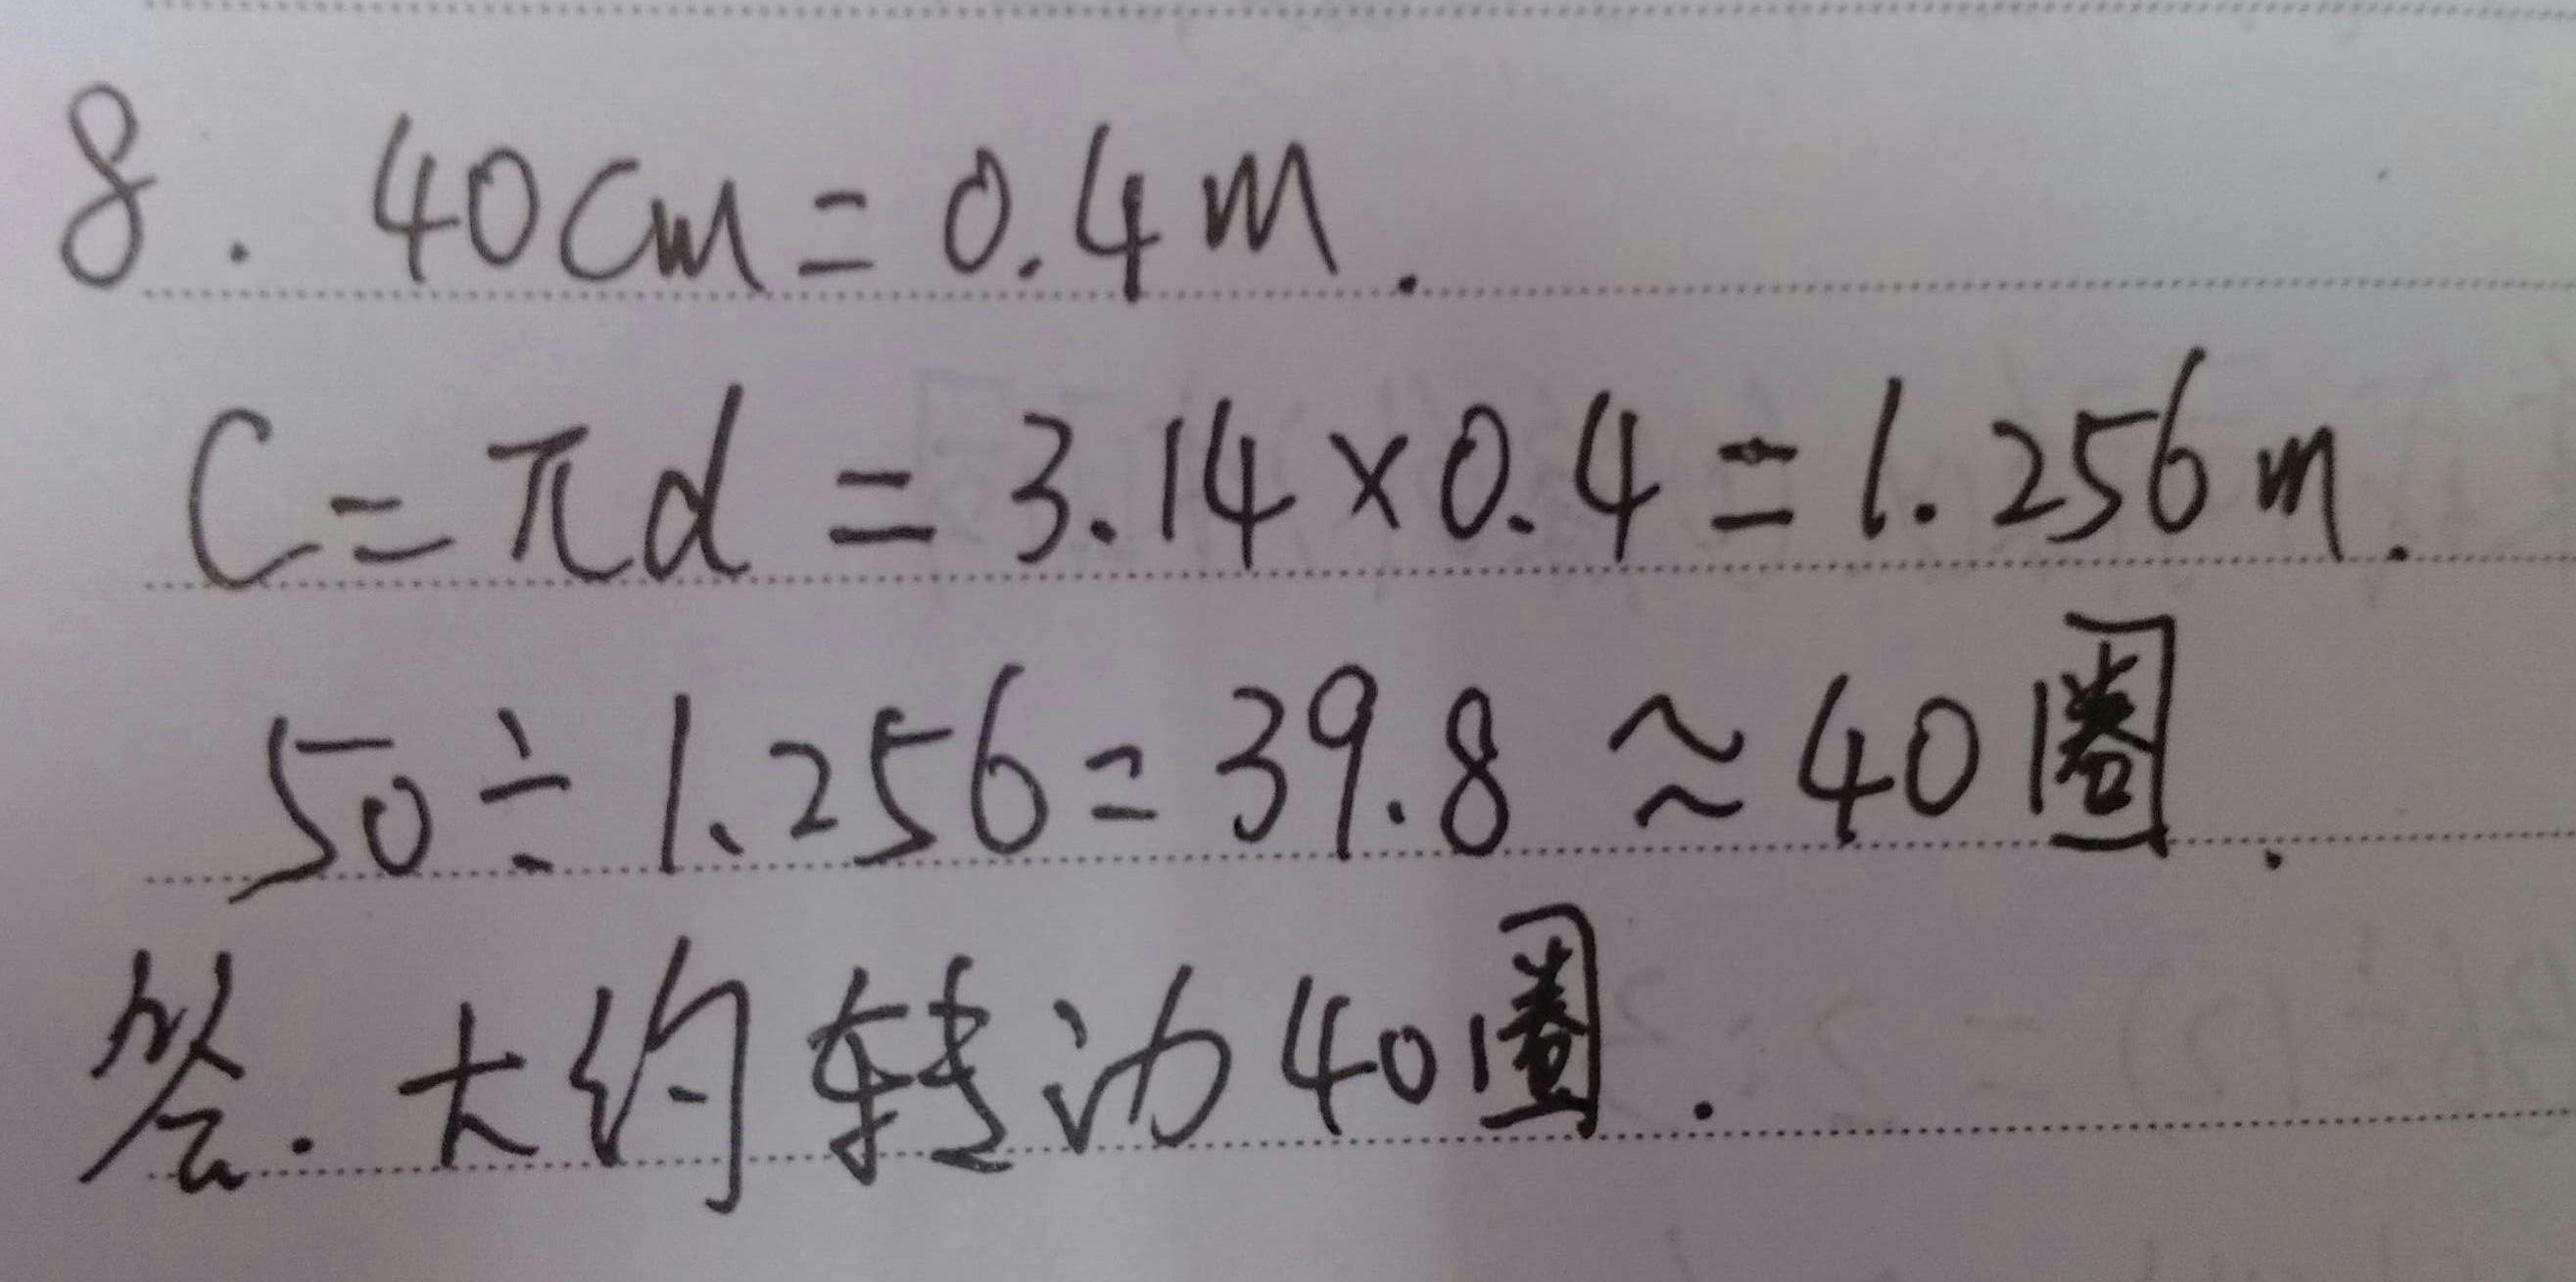 8. 40cm=0.4m.
C=πd=3.14×0.4=1.256m.
50÷1.256=39.8≈40圈.
答.大约转动40圈.